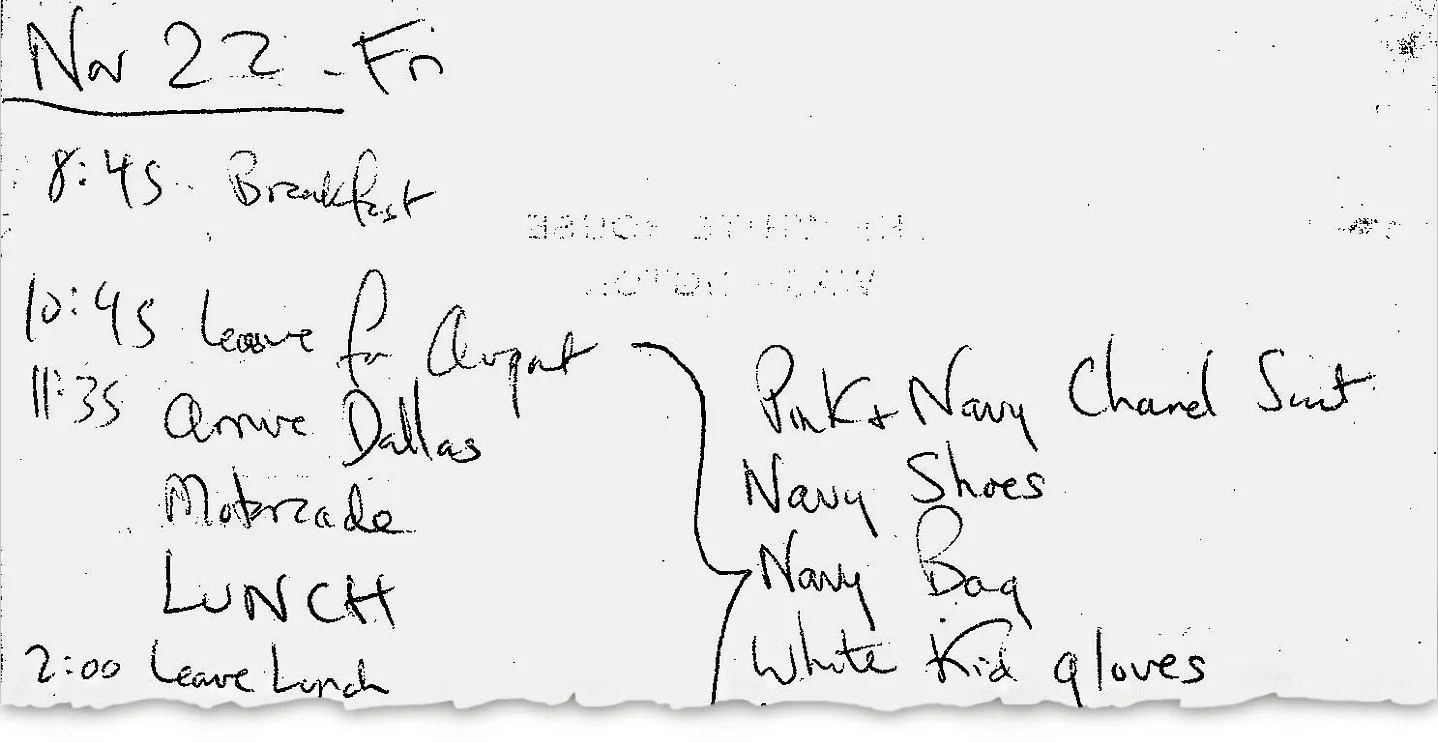 Nov 22 - Fri
8:45 Breakfast
10:45 Leave for Airport
11:35 Arrive Dallas
Motorcade
LUNCH
2:00 Leave Lunch
Pink + Navy Chanel Suit
Navy Shoes
Navy Bag
White Kid gloves